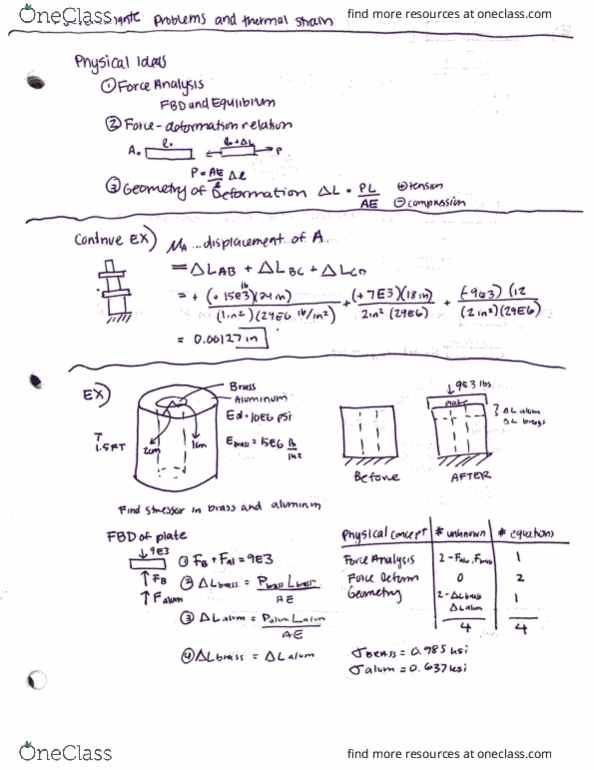 OneClass
find more resources at oneclass.com
problems and thermal strain
Physical Ideas
① Force Analysis
FBD and Equilibrium
② Force-deformation relation
A. l. l.+ΔL P
P = AE/l Δl
③ Geometry of Deformation ΔL = PL/AE ⊕ tension
⊖ compression
Continue EX) MA ... displacement of A
= ΔLAB + ΔLBC + ΔLCD
= + (+15E3)(24in)/(1in²)(29E6 lb/in²) + (+7E3)(18in)/2in²(29E6) + (-9E3)(12/(2in²)(29E6)
= 0.00127 in
EX)
Brass
Aluminum
10E6 psi
= 15E6 lb/in²
1.5FT
2cm
Before
AFTER
↓9E3 lbs
plate
ΔL alum
Find stresser in brass and aluminum
FBD of plate
↓9E3
↑FB
↑F alum
① FB + FAl = 9E3
② ΔLbrass = /AE
③ ΔLalum = Palum Lalum/AE
④ ΔLbrass = ΔLalum
Physical concept # unknown # equations
Force Analysis 2- 1
Force Deform 0 2
Geometry 2-ΔLbrass 1
ΔLalum
4 4
σBRASS = 0.985 ksi
σalum = 0.637 ksi
OneClass
find more resources at oneclass.com